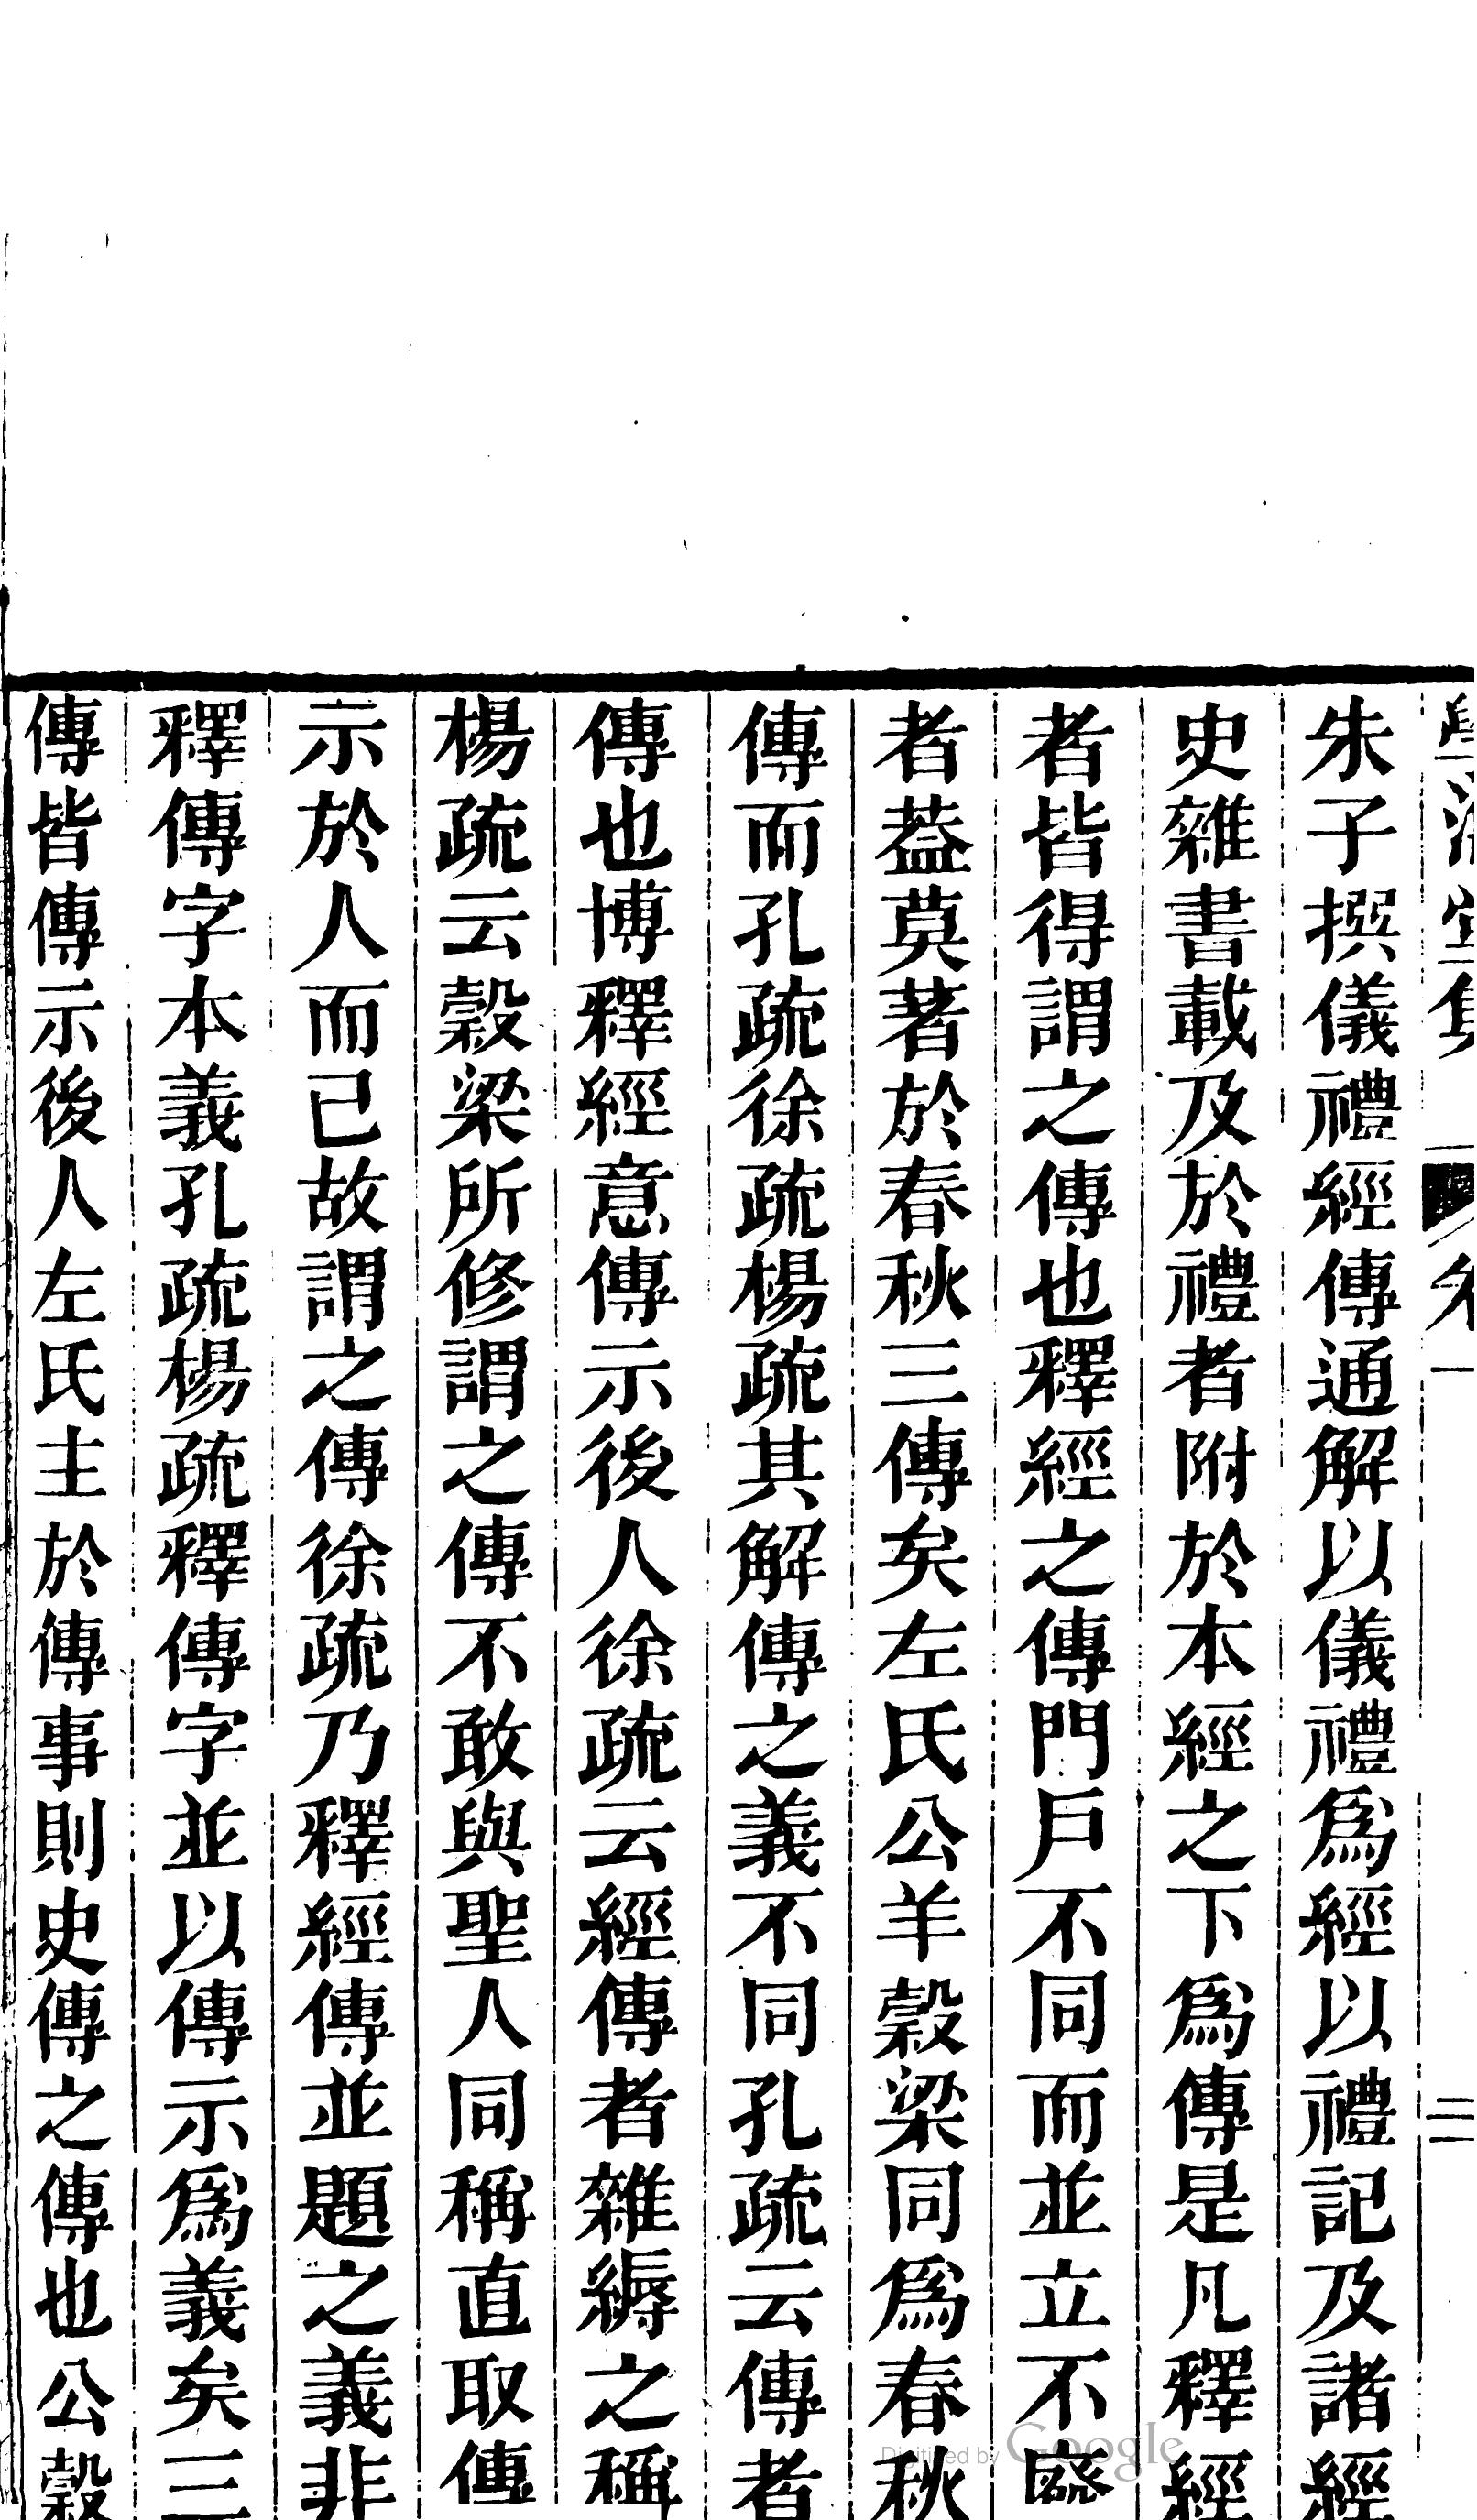 朱子撰儀禮經傳通解以儀禮爲經以禮記及諸經
史雜書載及於禮者附於本經之下爲傳是凡釋經
者皆得謂之傳也釋經之傳門戶不同而並立不廢
者葢莫著於春秋三傳矣左氏公羊穀梁同爲春秋
傳而孔疏徐疏楊疏其解傳之義不同孔疏云傳者
傳也博釋經意傳示後人徐疏云經傳者雜縟之稱
楊疏云穀梁所修謂之傳不敢與聖人同稱直取傳
示於人而已故謂之傳徐疏乃釋經傳並題之義非
釋傳字本義孔疏楊疏釋傳字並以傳示爲義矣三
傳皆傳示後人左氏主於傳事則史傳之傳也公穀
Digitized by Google